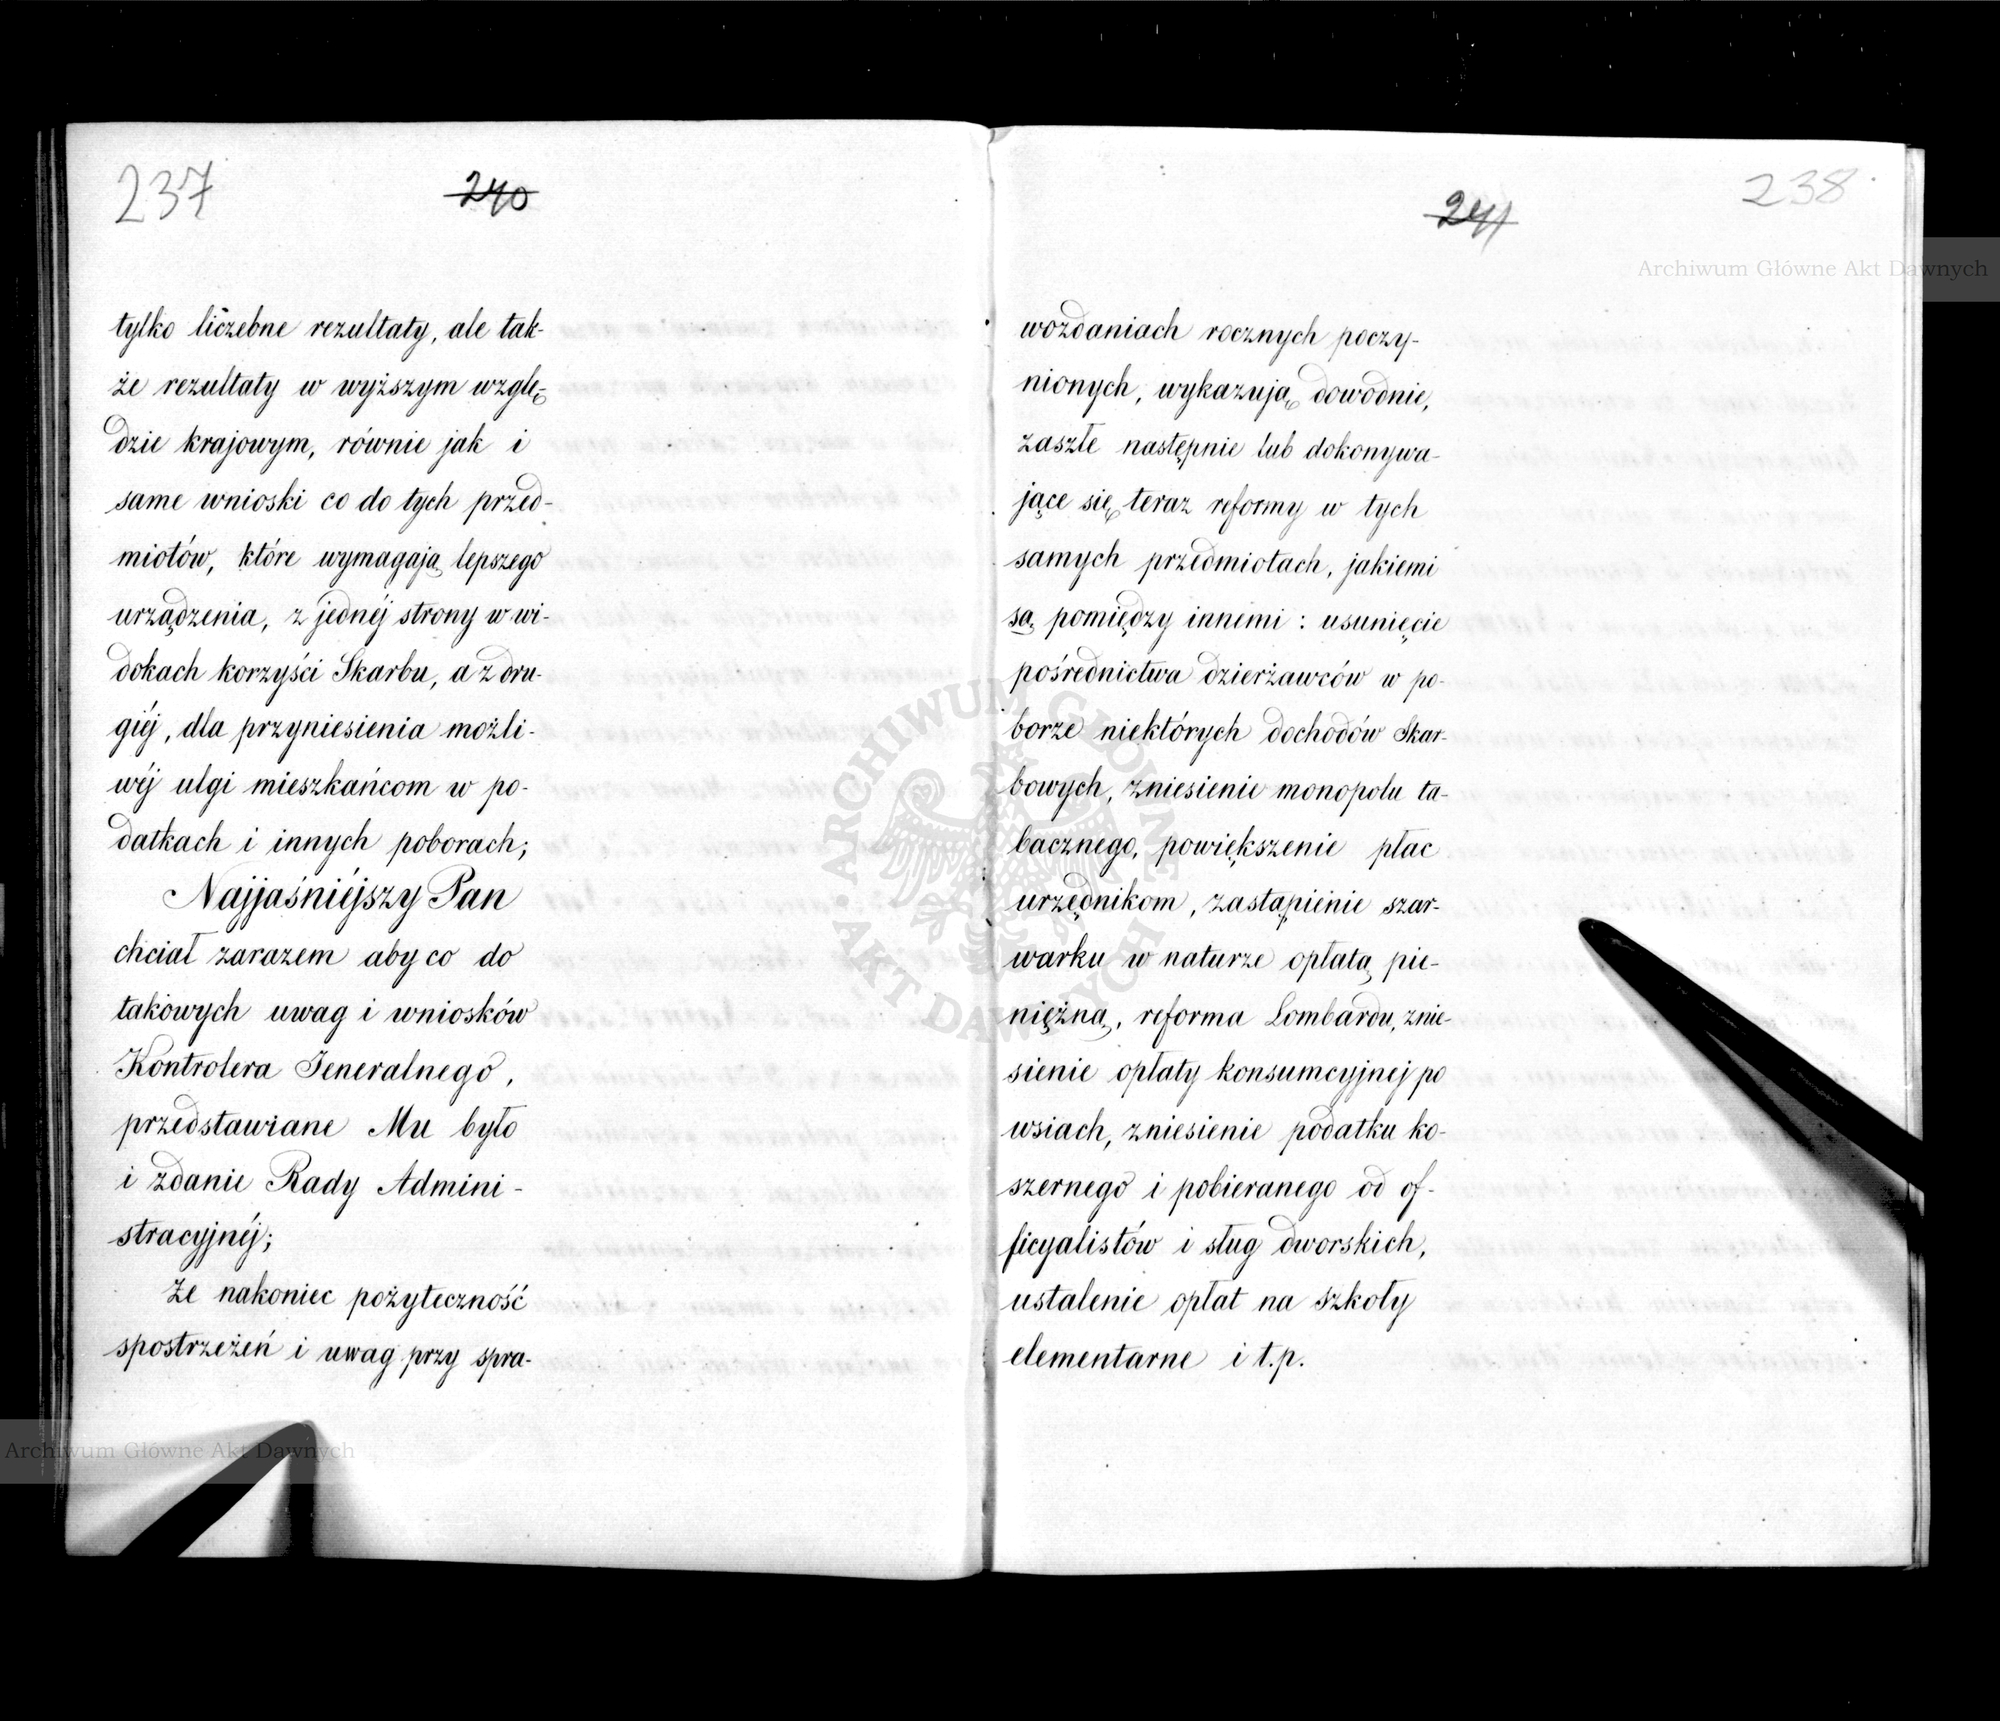 237
240
tylko liczebne rezultaty, ale tak-
że rezultaty w wyższym wzglę-
dzie krajowym, równie jak i
same wnioski co do tych przed-
miotów, które wymagają lepszego
urządzenia, z jednéj strony w wi-
dokach korzyści Skarbu, a z dru-
giéj, dla przyniesienia możli-
wéj ulgi mieszkańcom w po-
datkach i innych poborach;
Najjaśniéjszy Pan
chciał zarazem aby co do
takowych uwag i wniosków
Kontrolera Jeneralnego,
przedstawiane Mu było
i zdanie Rady Admini-
stracyjnéj;
Że nakoniec pożyteczność
spostrzeżeń i uwag przy spra-
238
241
wozdaniach rocznych poczy-
nionych, wykazują dowodnie,
zaszłe następnie lub dokonywa-
jące się teraz reformy w tych
samych przedmiotach, jakiemi
są pomiędzy innemi: usunięcie
pośrednictwa dzierżawców w po-
borze niektórych dochodów Skar-
bowych, zniesienie monopolu ta-
bacznego, powiększenie płac
urzędnikom, zastąpienie szar-
warku w naturze opłatą pie-
niężną, reforma Lombardu, znie-
sienie opłaty konsumcyjnej po
wsiach, zniesienie podatku ko-
szernego i pobieranego od of-
ficyalistów i sług dworskich,
ustalenie opłat na szkoły
elementarne i t.p.
Archiwum Główne Akt Dawnych
ARCHIWUM GŁÓWNE AKT DAWNYCH
Archiwum Główne Akt Dawnych